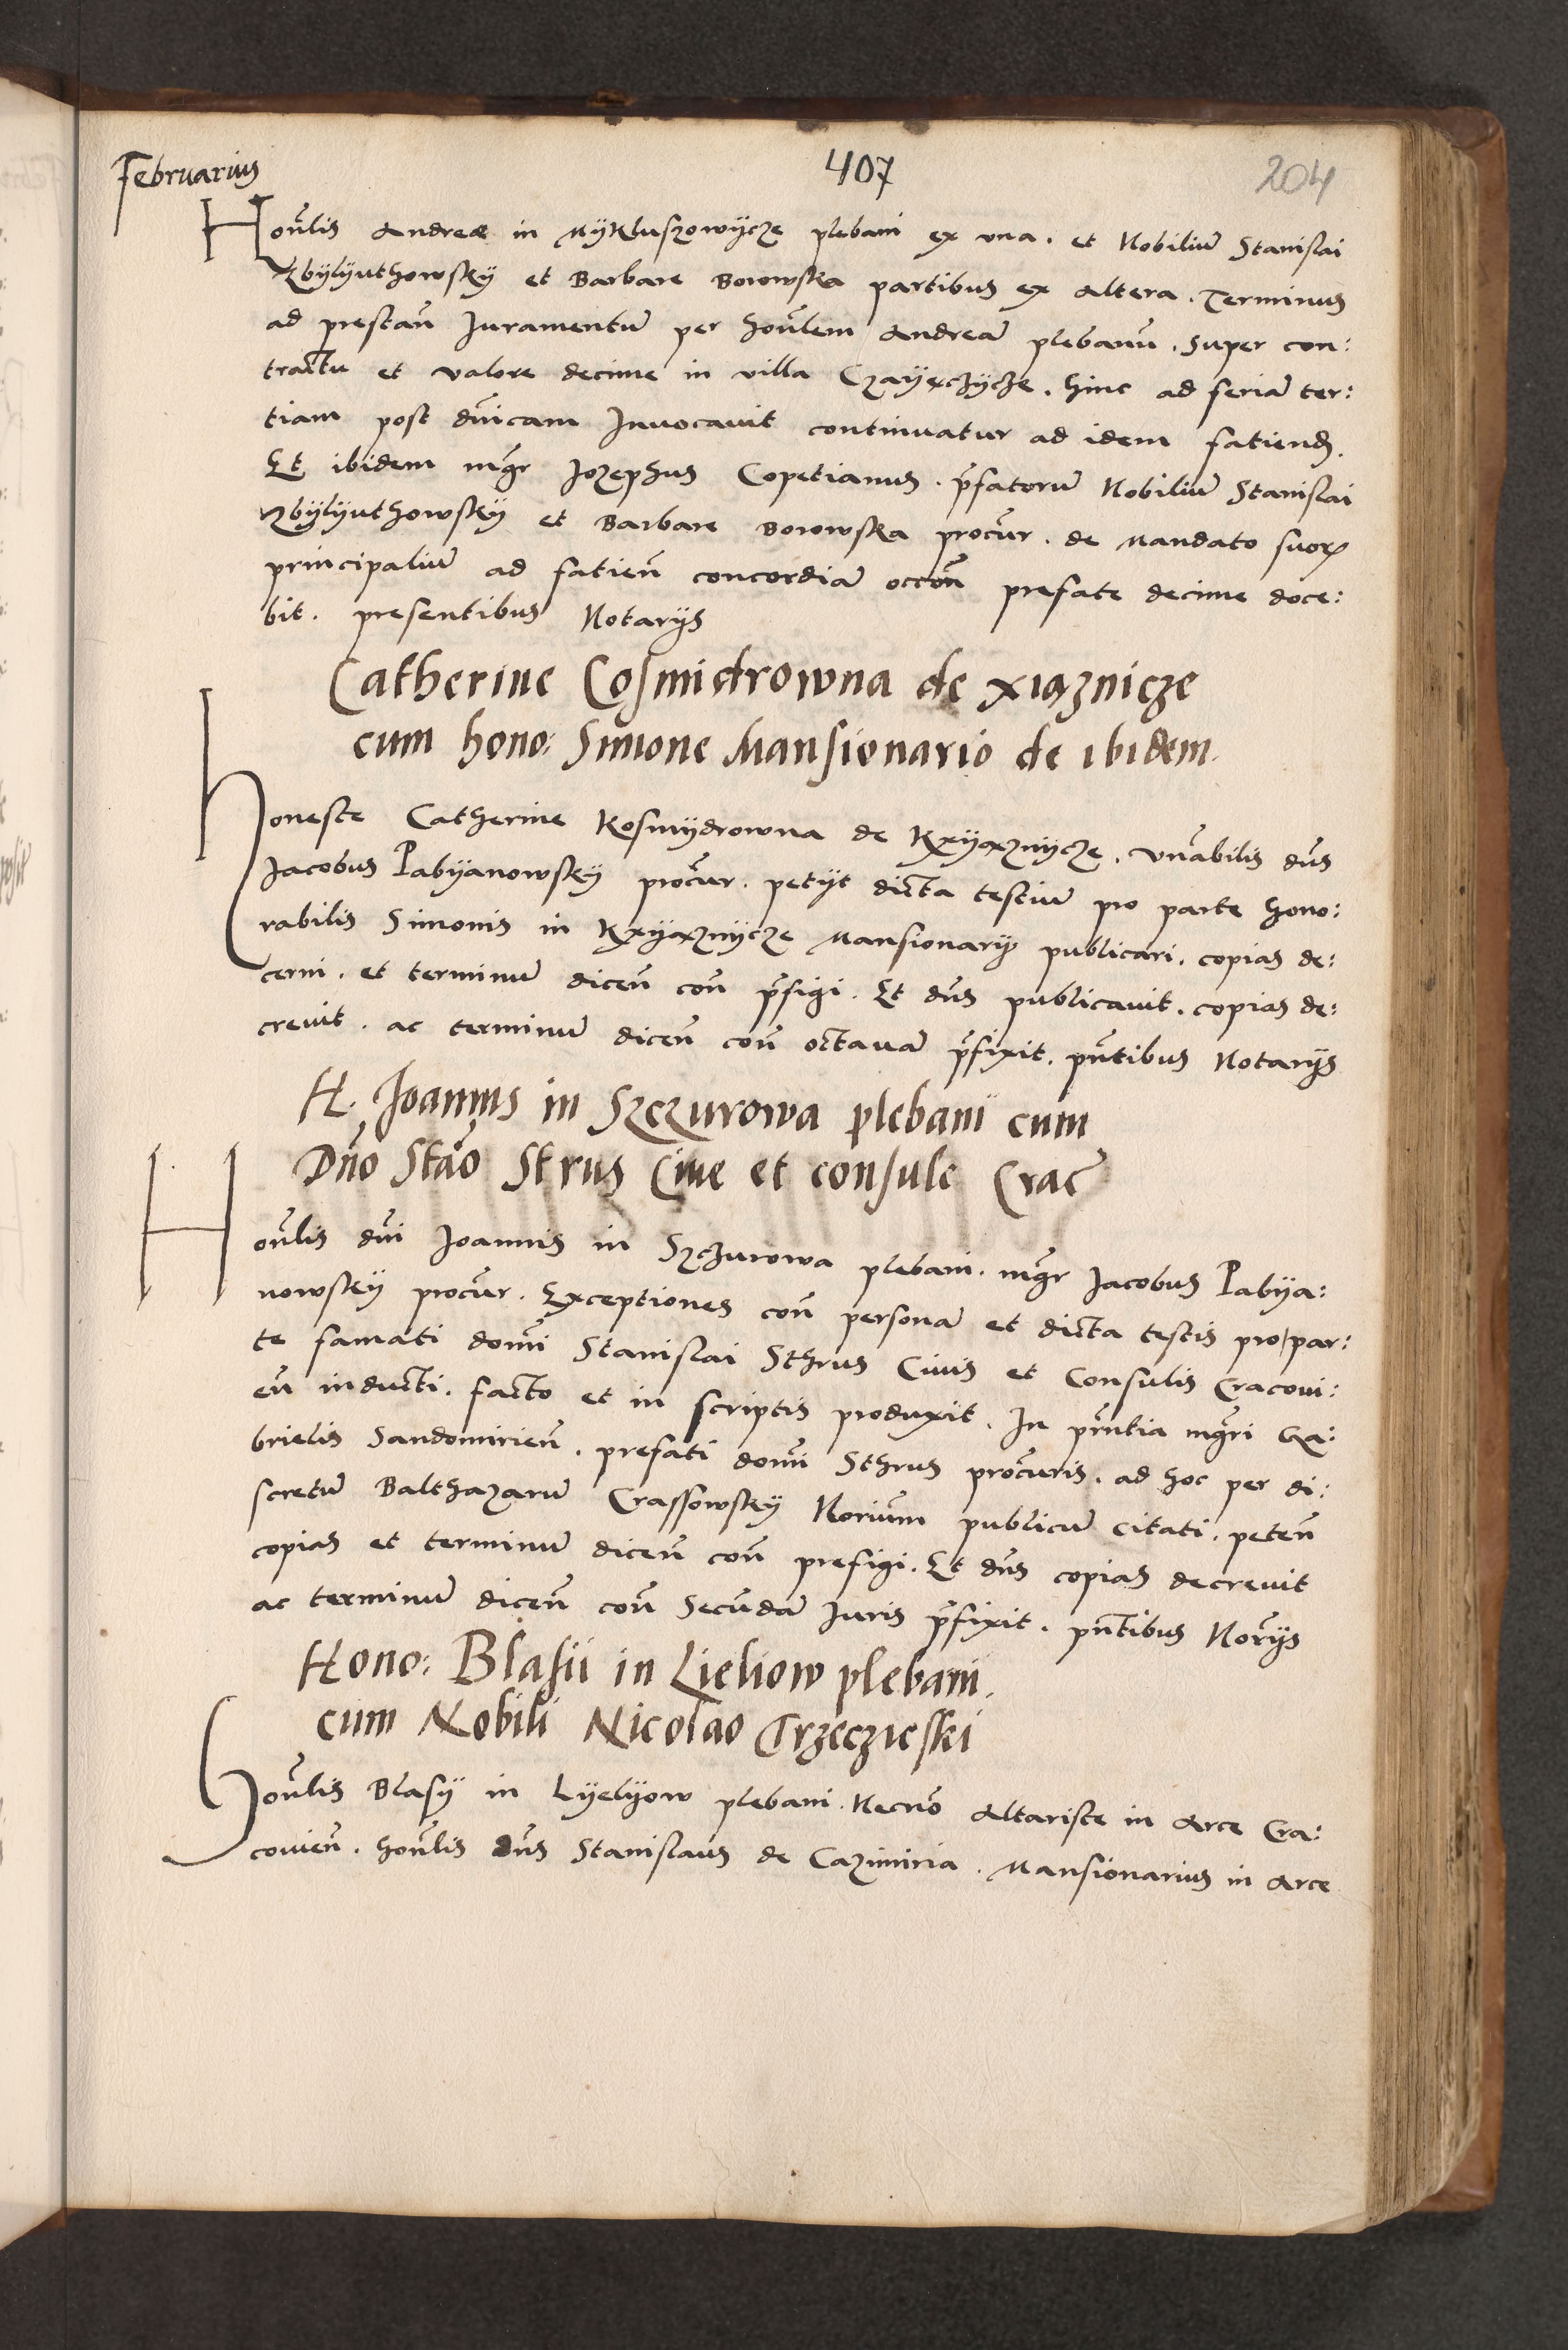 Februarius
407
204
Honͫlis Andreæ in Mÿkluszowÿcze plebani ex vna. et Nobiliū Stanislai
Zbÿlÿuthowskÿ et Barbare Borowska partibus ex altera. Terminus
ad prestañ Iuramentū per hoñlem Andreā plebanū. super con:
tractu et valore decime in villa Czaÿęczÿcze. hinc ad feriā ter:
tiam post dñicam Inuocauit continuatur ad idem fatiend.
Et ibidem mgr̃ Jozephus Copetianus. p̃fatorū Nobiliū Stanislai
Zbÿlÿuthowskÿ et Barbare Borowska procũr. de mandato suoꝝ
principaliū ad fatieñ concordiā occoñ prefate decime doce:
bit. presentibus Notarÿs
Catherine Cosmidrowna de Xiąznicze
cum hono: Simone Mansionario de ibidem.
Honeste Catherine Kosmÿdrowna de Kxÿąznÿcze. vñabilis dñs
Jacobus Pabÿanowskÿ procũr. petÿt dicta testiū pro parte hono:
rabilis Simonis in Kxÿąznÿcze Mansionarÿ publicari. copias de:
cerni. et terminū diceñ coñ p̃figi. Et dñs publicauit. copias de:
creuit. ac terminū diceñ coñ octauā p̃fixit. pñtibus Notarÿs
H. Joannis in Szczurowa plebani cum
Dño Stão Strus Ciue et consule Crac̃
Hoñlis dñi Joannis in Szczurowa plebani. mgr̃ Jacobus Pabÿa:
nowskÿ procũr. Exceptiones coñ personā et dicta testis pro par:
te famati domĩ Stanislai Sthrus Ciuis et Consulis Cracoui:
eñ inducti. facto et in scriptis produxit. In pñtia mgr̃i Ga:
brielis Sandomirieñ. prefati domĩ Sthrus procũris. ad hoc per di:
scretū Balthazarum Crassowskÿ Noriũm publicū citati. peteñ
copias et terminū diceñ coñ prefigi. Et dñs copias decreuit
ac terminū diceñ coñ Secũdā Iuris p̃fixit. pñtibus Norĩÿs
Hono: Blasii in Lieliow plebani.
cum Nobili Nicolao Trzeczieski
Hoñlis Blasÿ in Lÿelÿow plebani. Necnõ Altariste in Arce Cra:
couieñ. hoñlis dñs Stanislaus de Cazimiria. Mansionarius in Arce